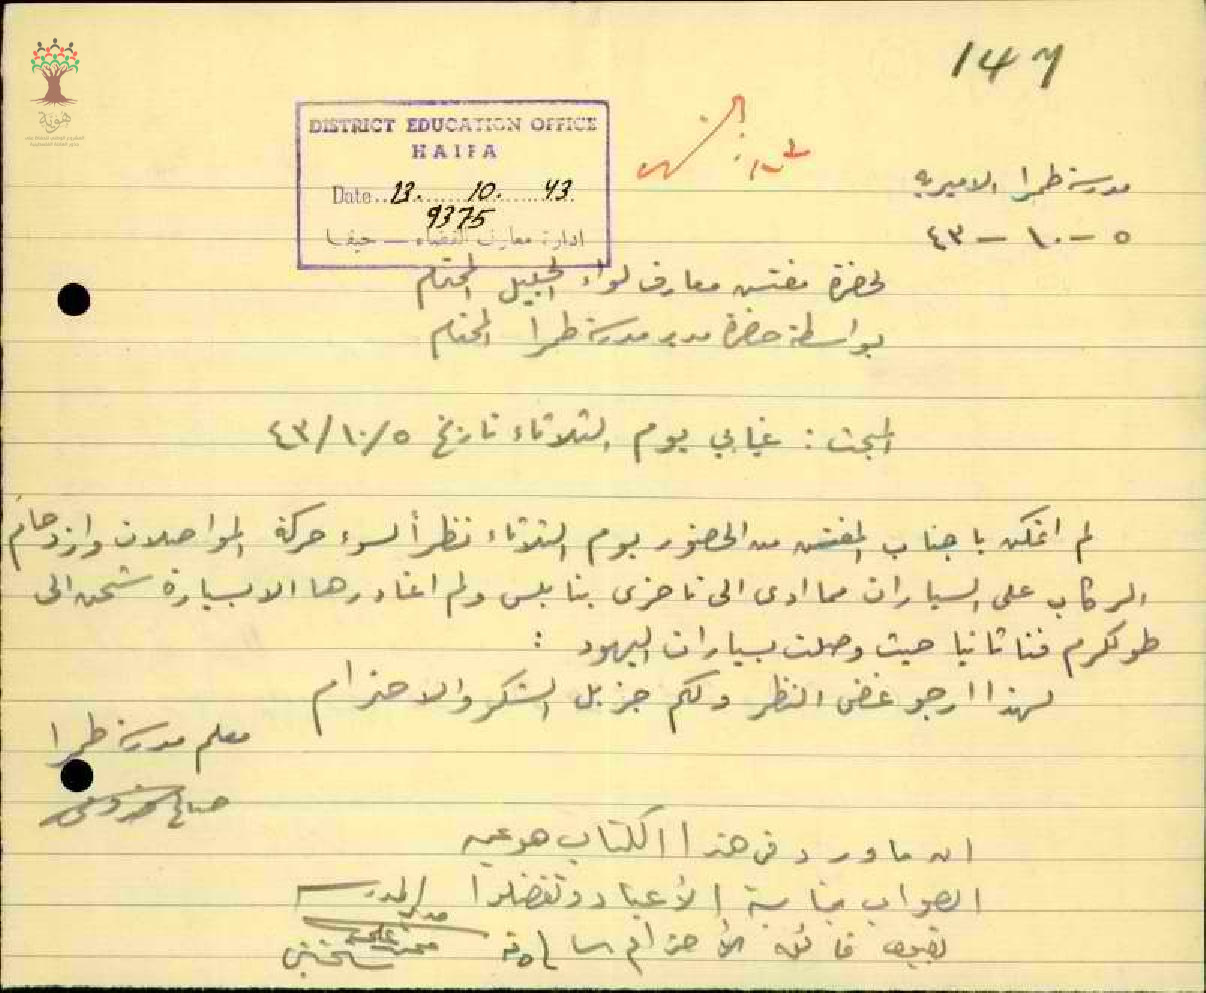 147
هوية
DISTRICT EDUCATION OFFICE
HAIFA
Date.. 13. 10. 43
9375
ادارة معارف القضاء — حيفا
مدرسة طمرا الاميريه
٥ - ١٠ - ٤٣
لحضرة مفتش معارف لواء الجليل المحترم
بواسطة حضرة مدير مدرسة طمرا المحترم
المبحث : غيابي يوم الثلاثاء تاريخ ٤٣/١٠/٥
لم اتمكن يا جناب المفتش من الحضور يوم الثلاثاء نظراً لسوء حركة المواصلات وازدحام
الركاب على السيارات مما ادى الى تأخري بنابلس ولم اغادرها الا بسيارة شحن الى
طولكرم حيث وصلت بسيارات اليهود :
لهذا ارجو غض النظر ولكم جزيل الشكر والاحترام
معلم مدرسة طمرا
صالح
ان ما ورد في هذا الكتاب هو عين
الصواب بمناسبة الأعياد وتفضلوا
بقبول فائق الأحترام
مدير المدرسة